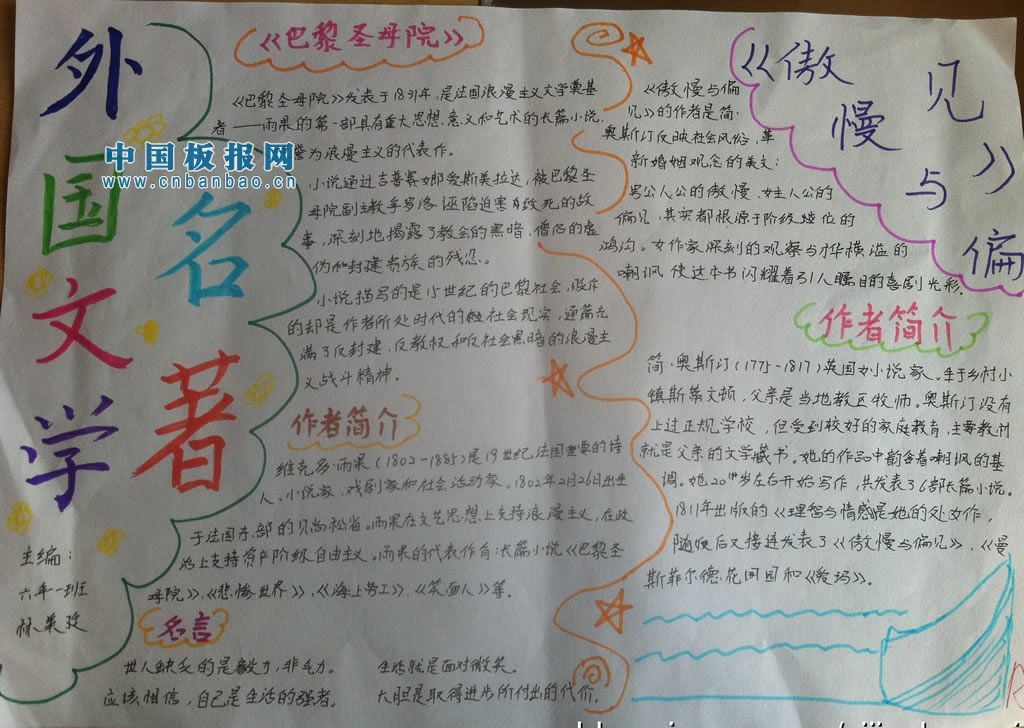 外国文学
名著
主编：
六年一班
中国板报网
www.cnbanbao.cn
《巴黎圣母院》
《巴黎圣母院》发表于1831年，是法国浪漫主义文学奠基
者——雨果的第一部具有重大思想意义和艺术的长篇小说，
誉为浪漫主义的代表作。
小说通过吉普赛女郎爱斯美拉达，被巴黎圣
母院副主教孚罗洛诬陷迫害致死的故
事，深刻地揭露了教会的黑暗，僧侣的虚
伪和封建贵族的残忍。
小说描写的是15世纪的巴黎社会，
的却是作者所处时代的社会现实，通篇充
满了反封建、反教权和反社会黑暗的浪漫主
义战斗精神。
作者简介
维克多·雨果（1802-1885）是19世纪法国重要的诗
人、小说家、戏剧家和社会活动家。1802年2月26日出生
于法国东部的贝尚松省。雨果在文艺思想上支持浪漫主义，在政
治上支持资产阶级自由主义。雨果的代表作有：长篇小说《巴黎圣
母院》、《悲惨世界》、《海上劳工》、《笑面人》等。
名言
世人缺乏的是毅力，非气力。
应该相信，自己是生活的强者。
生活就是面对微笑。
大胆是取得进步所付出的代价。
《傲慢与偏见》
《傲慢与偏
见》的作者是简·
奥斯汀反映社会风俗，革
新婚姻观念的美文：
男公人公的傲慢、女主人公的
偏见，其实都根源于阶级地位的
鸿沟。女作家深刻的观察与才华横溢的
嘲讽使这本书闪耀着引人瞩目的喜剧光彩。
作者简介
简·奥斯汀（1775-1817）英国女小说家。生于乡村小
镇斯蒂文顿，父亲是当地教区牧师。奥斯汀没有
上过正规学校，但受到较好的家庭教育，主要教材
就是父亲的文学藏书。她的作品中韵含着嘲讽的基
调。她20岁左右开始写作，共发表了6部长篇小说。
1811年出版的《理智与情感》是她的处女作，
随后又接连发表了《傲慢与偏见》、《曼
斯菲尔德花园》和《爱玛》。